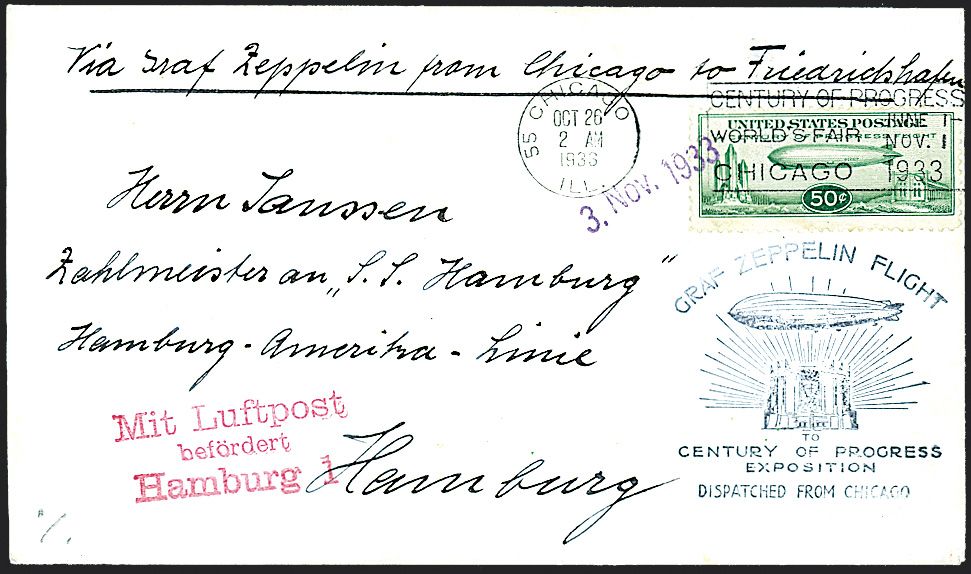 Via Graf Zeppelin from Chicago to Friedrichshafen
55 CHICAGO ILL.
OCT 26
2 AM
1933
CENTURY OF PROGRESS
WORLD'S FAIR
CHICAGO
JUNE 1-
NOV. 1
1933
UNITED STATES POSTAGE
50¢
3. Nov. 1933
Herrn Janssen
Zahlmeister an „S. S. Hamburg"
Hamburg-Amerika-Linie
Hamburg
Mit Luftpost
befördert
Hamburg 1
GRAF ZEPPELIN FLIGHT
TO
CENTURY OF PROGRESS
EXPOSITION
DISPATCHED FROM CHICAGO